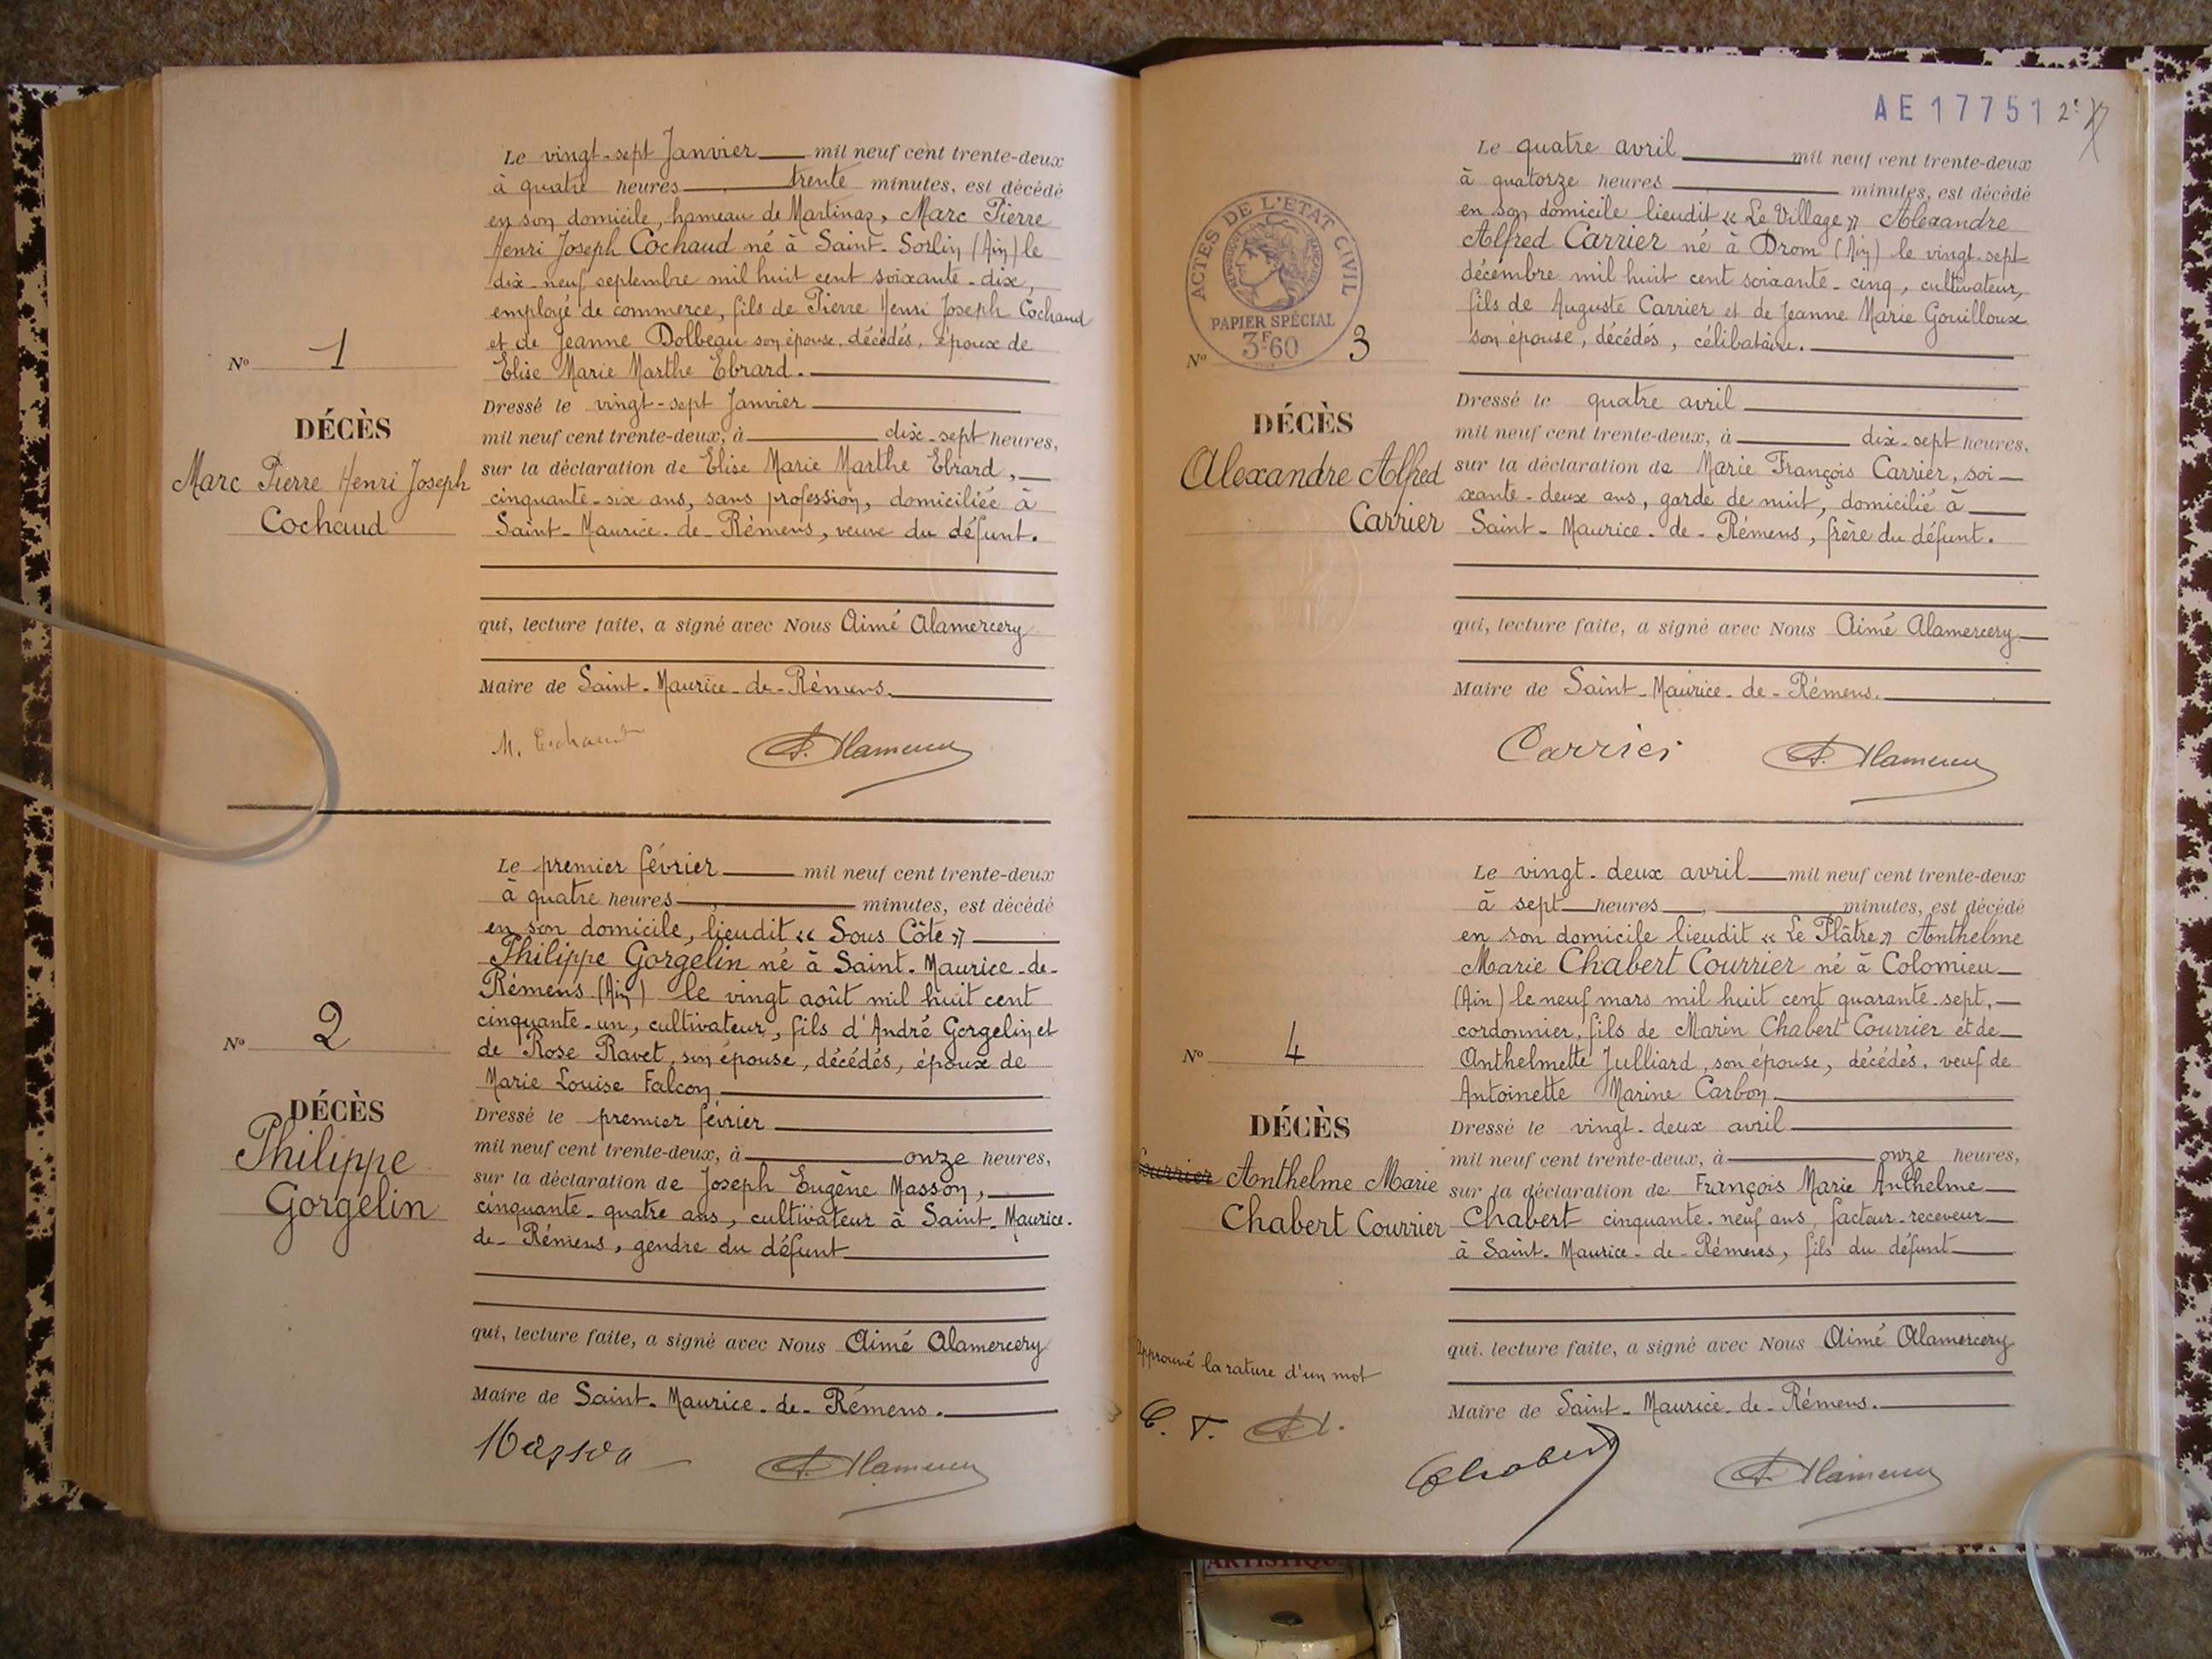 Le vingt-sept Janvier mil neuf cent trente-deux
à quatre heures trente minutes, est décédé
en son domicile, hameau de Martinaz, Marc Pierre
Henri Joseph Cochaud né à Saint-Sorlin (Ain) le
dix-neuf septembre mil huit cent soixante-dix,
employé de commerce, fils de Pierre Henri Joseph Cochaud
et de Jeanne Dolbeau son épouse, décédés, époux de
Elise Marie Marthe Ebrard.
Nº 1
DÉCÈS
Marc Pierre Henri Joseph
Cochaud
Dressé le vingt-sept Janvier
mil neuf cent trente-deux, à dix-sept heures,
sur la déclaration de Elise Marie Marthe Ebrard,
cinquante-six ans, sans profession, domiciliée à
Saint-Maurice-de-Rémens, veuve du défunt.
qui, lecture faite, a signé avec Nous Aimé Alamercery
Maire de Saint-Maurice-de-Rémens.
Le premier février mil neuf cent trente-deux
à quatre heures minutes, est décédé
en son domicile, lieudit « Sous Côte »
Philippe Gorgelin né à Saint-Maurice-de-
Rémens (Ain) le vingt août mil huit cent
cinquante-un, cultivateur, fils d'André Gorgelin et
de Rose Ravet, son épouse, décédés, époux de
Marie Louise Falcon
Nº 2
DÉCÈS
Philippe
Gorgelin
Dressé le premier février
mil neuf cent trente-deux, à onze heures,
sur la déclaration de Joseph Eugène Masson,
cinquante-quatre ans, cultivateur à Saint-Maurice-
de-Rémens, gendre du défunt
qui, lecture faite, a signé avec Nous Aimé Alamercery
Maire de Saint-Maurice-de-Rémens.
Masson
AE 17751 2e
Le quatre avril mil neuf cent trente-deux
à quatorze heures minutes, est décédé
en son domicile lieudit « Le Village » Alexandre
Alfred Carrier né à Drom (Ain) le vingt-sept
décembre mil huit cent soixante-cinq, cultivateur,
fils de Auguste Carrier et de Jeanne Marie Gouilloux
son épouse, décédés, célibataire.
ACTES DE L'ETAT CIVIL
REPUBLIQUE FRANÇAISE
PAPIER SPÉCIAL
3F60
Nº 3
DÉCÈS
Alexandre Alfred
Carrier
Dressé le quatre avril
mil neuf cent trente-deux, à dix-sept heures,
sur la déclaration de Marie François Carrier, soi-
xante-deux ans, garde de nuit, domicilié à
Saint-Maurice-de-Rémens, frère du défunt.
qui, lecture faite, a signé avec Nous Aimé Alamercery
Maire de Saint-Maurice-de-Rémens.
Carrier
Le vingt-deux avril mil neuf cent trente-deux
à sept heures minutes, est décédé
en son domicile lieudit « Le Plâtre » Anthelme
Marie Chabert Courrier né à Colomieu
(Ain) le neuf mars mil huit cent quarante-sept,
cordonnier, fils de Marin Chabert Courrier et de
Anthelmette Julliard, son épouse, décédés, veuf de
Antoinette Marine Carbon
Nº 4
DÉCÈS
Courrier Anthelme Marie
Chabert Courrier
Dressé le vingt-deux avril
mil neuf cent trente-deux, à onze heures,
sur la déclaration de François Marie Anthelme
Chabert cinquante-neuf ans, facteur-receveur
à Saint-Maurice-de-Rémens, fils du défunt
qui, lecture faite, a signé avec Nous Aimé Alamercery
Maire de Saint-Maurice-de-Rémens.
Approuvé la rature d'un mot
Chabert
ARTISTIQUE